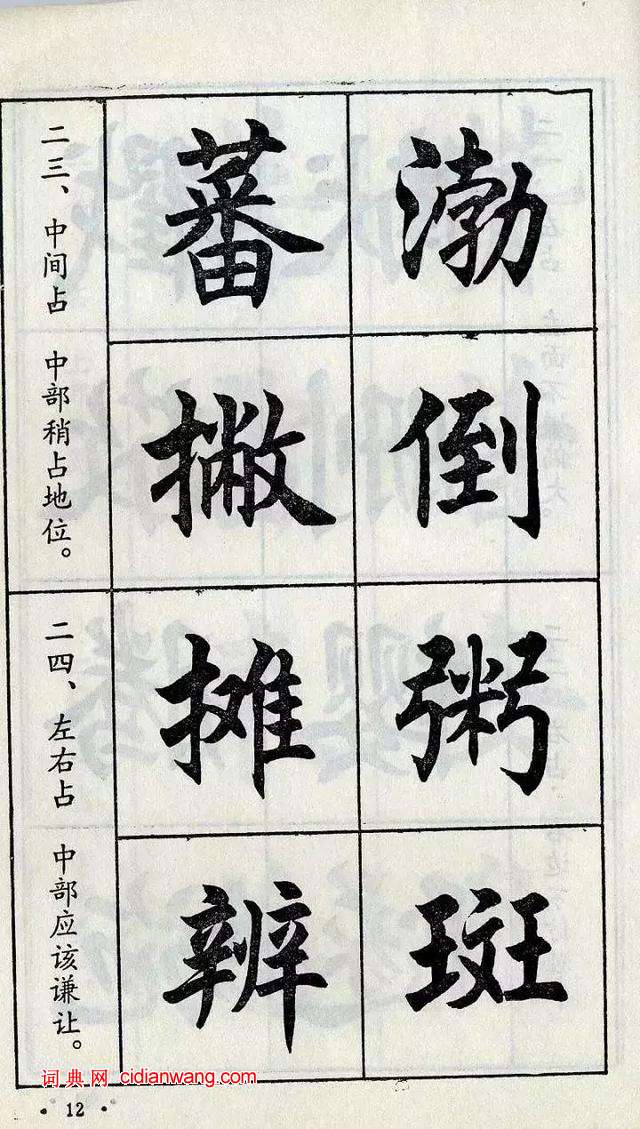 渤
蕃
倒
撇
二三、中间占 中部稍占地位。
粥
摊
斑
辨
二四、左右占 中部应该谦让。
词典网 cidianwang.com
·12·